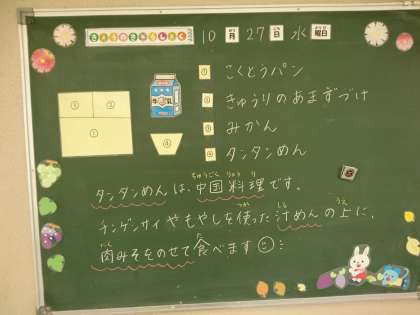 きょうのきゅうしょく 10月27日水曜日
① こくとうパン
② きゅうりのあまずづけ
③ みかん
④ タンタンめん
③ ②
①
④
牛乳
タンタンめんは、中国料理です。
チンゲンサイやもやしを使った汁めんの上に、
肉みそをのせて食べます